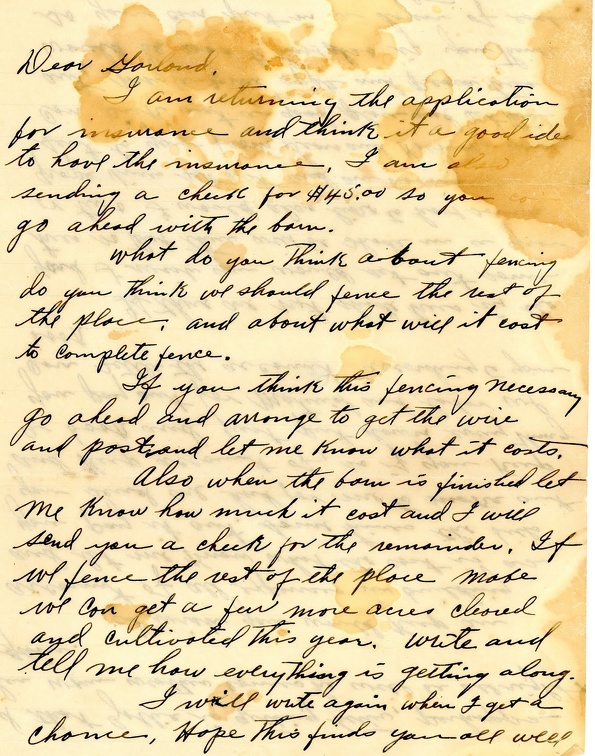 Dear Garland,
I am returning the application
for insurance and think it a good idea
to have the insurance, I am also
sending a check for $45.00 so you
go ahead with the barn.
What do you think about fencing
do you think we should fence the rest of
the place, and about what will it cost
to complete fence.
If you think this fencing necessary
go ahead and arrange to get the wire
and posts and let me know what it costs.
Also when the barn is finished let
me know how much it cost and I will
send you a check for the remainder. If
we fence the rest of the place mabe
we can get a few more acres cleared
and cultivated this year. Write and
tell me how everything is getting along.
I will write again when I get a
chance, Hope this finds you all well